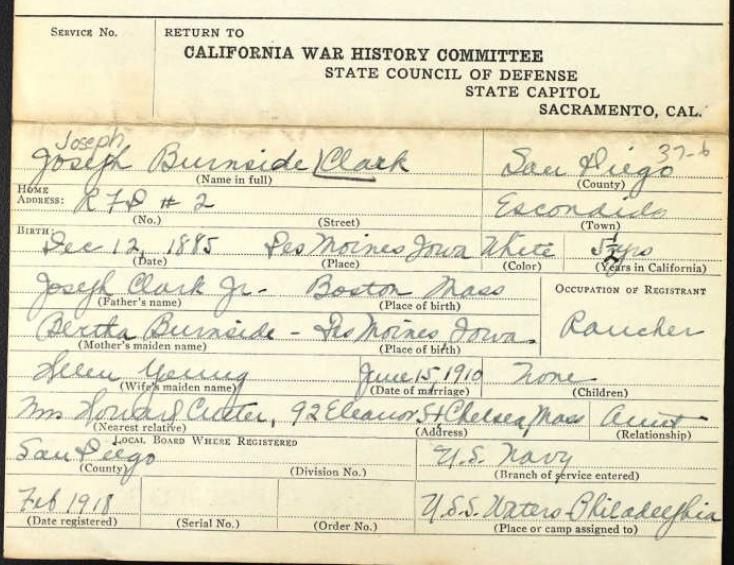 SERVICE No.
RETURN TO
CALIFORNIA WAR HISTORY COMMITTEE
STATE COUNCIL OF DEFENSE
STATE CAPITOL
SACRAMENTO, CAL.
Joseph
37-6
Joseph Burnside Clark San Diego
(Name in full) (County)
HOME ADDRESS: R F D # 2 Escondido
(No.) (Street) (Town)
BIRTH: Dec 12, 1885 Des Moines Iowa White yrs
(Date) (Place) (Color) (Years in California)
Joseph Clark Jr- Boston Mass OCCUPATION OF REGISTRANT
(Father's name) (Place of birth)
Bertha Burnside - Des Moines, Iowa. Rancher
(Mother's maiden name) (Place of birth)
Helen Young June 15, 1910 None
(Wife's maiden name) (Date of marriage) (Children)
Mrs Howard Custer, 92 Eleanor St Chelsea, Mass Aunt
(Nearest relative) (Address) (Relationship)
LOCAL BOARD WHERE REGISTERED
San Diego U.S. Navy
(County) (Division No.) (Branch of service entered)
Feb 1918 U.S.S. Waters-Philadelphia
(Date registered) (Serial No.) (Order No.) (Place or camp assigned to)